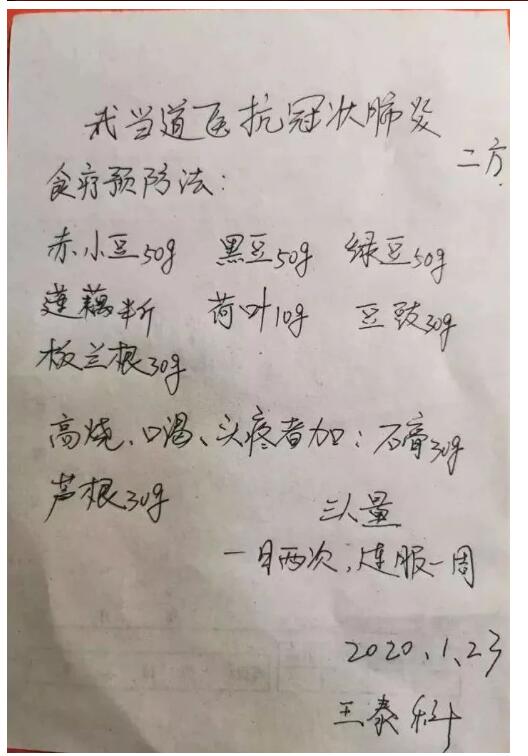 武当道医抗冠状肺炎
二方
食疗预防法:
赤小豆50g 黑豆50g 绿豆50g
莲藕半斤 荷叶10g 豆豉30g
板兰根30g
高烧、口渴、头疼者加:石膏30g
芦根30g
三人量
一日两次,连服一周
2020.1.23
王泰科